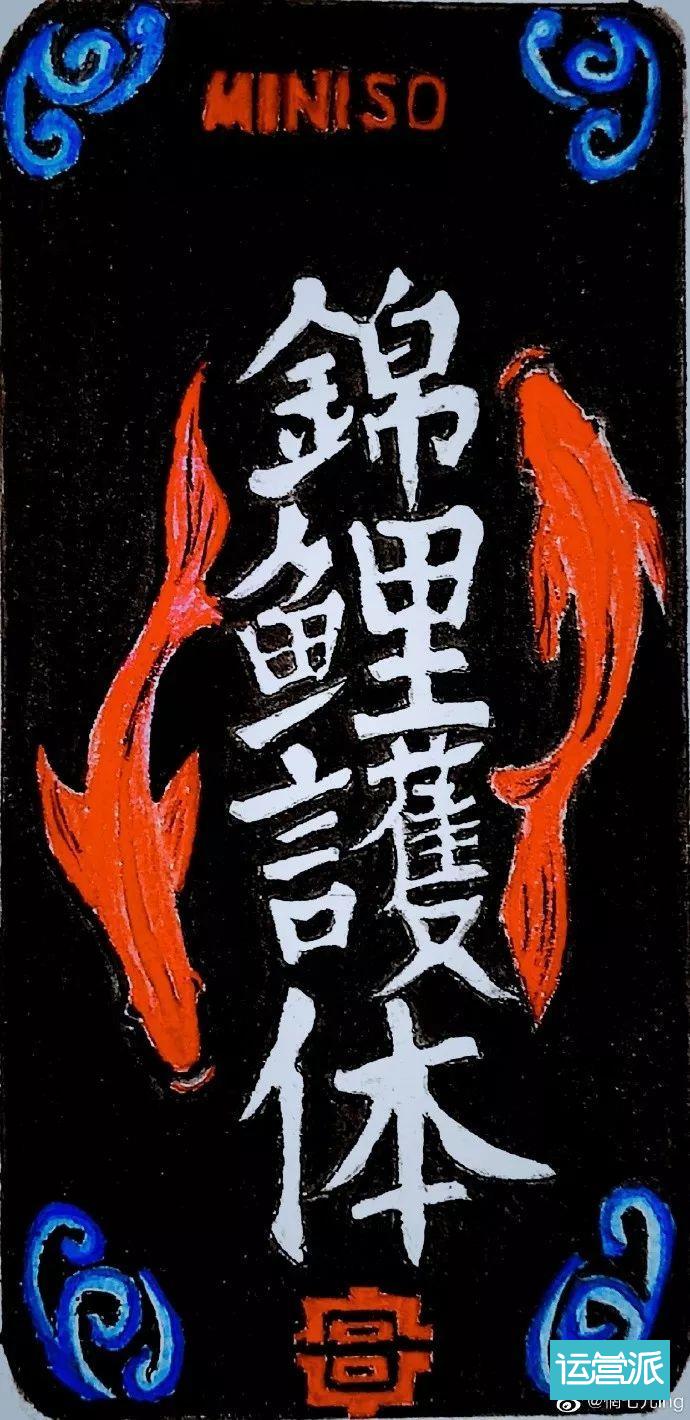 MINISO
錦鲤護体
运营派